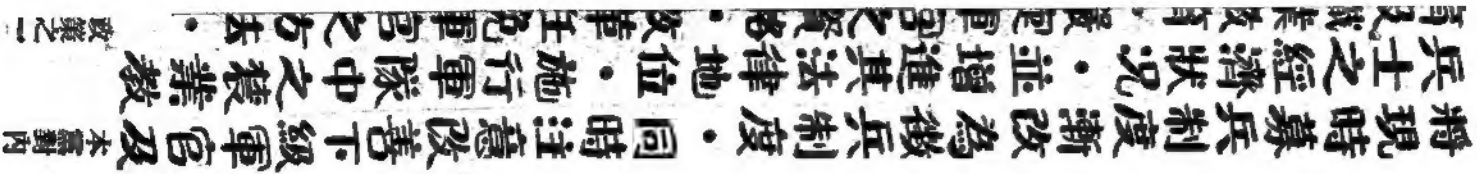 將現時募兵制度漸改為徵兵制度・同時注意改善下級軍官及
兵士之經濟狀況・並增進其法律地位・施行軍隊中之農業教
育及職業教育・嚴定軍官之資格・改革任免軍官之方法・
本黨對內
政策之一